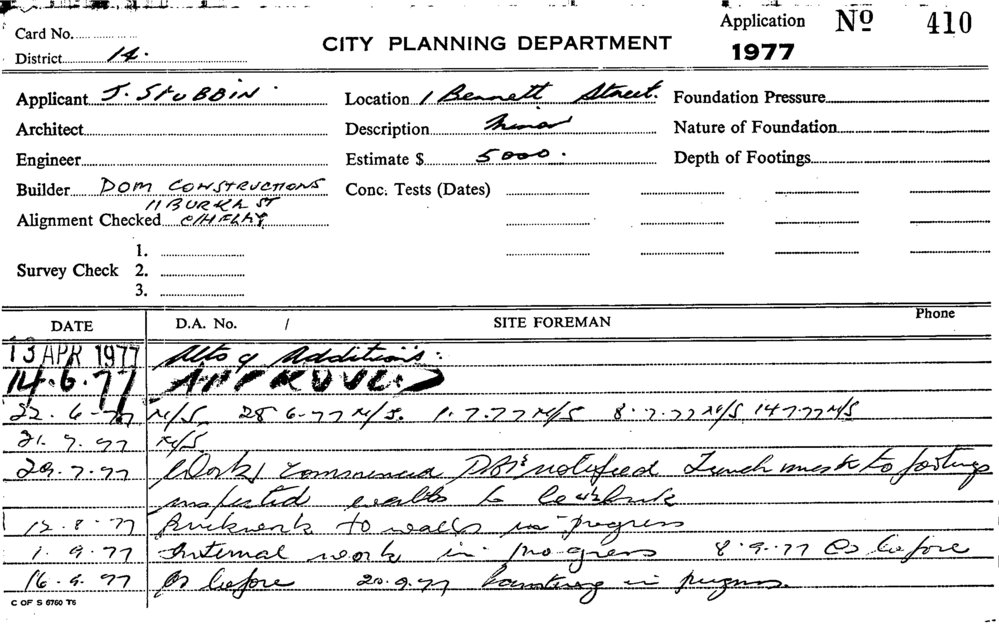 Application No 410
Card No.
CITY PLANNING DEPARTMENT
1977
District 14.
Applicant J. STUBBIN. Location 1 Bennett Street. Foundation Pressure
Architect Description Minor Nature of Foundation
Engineer Estimate $ 5000. Depth of Footings
Builder DOM CONSTRUCTIONS Conc. Tests (Dates)
11 BURKA ST
Alignment Checked
1.
Survey Check 2.
3.
DATE D.A. No. / SITE FOREMAN Phone
13 APR 1977 Alts & Additions:
14.6.77 APPROVED
22.6.77 N/S. 28.6.77 N/S. 1.7.77 N/S 8.7.77 N/S 14.7.77 N/S
21.7.77 N/S
29.7.77 Work commenced notified Trench mesh to footings
inspected walls to be
12.8.77 Brickwork to walls in progress
1.9.77 Internal work in progress 8.9.77 As before
16.9.77 As before 20.9.77 in progress.
C OF S 6760 T6